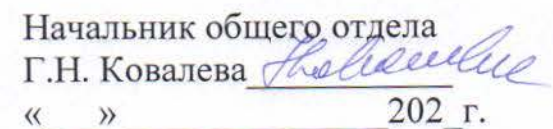 Начальник общего отдела
Г.Н. Ковалева
« » 202 г.